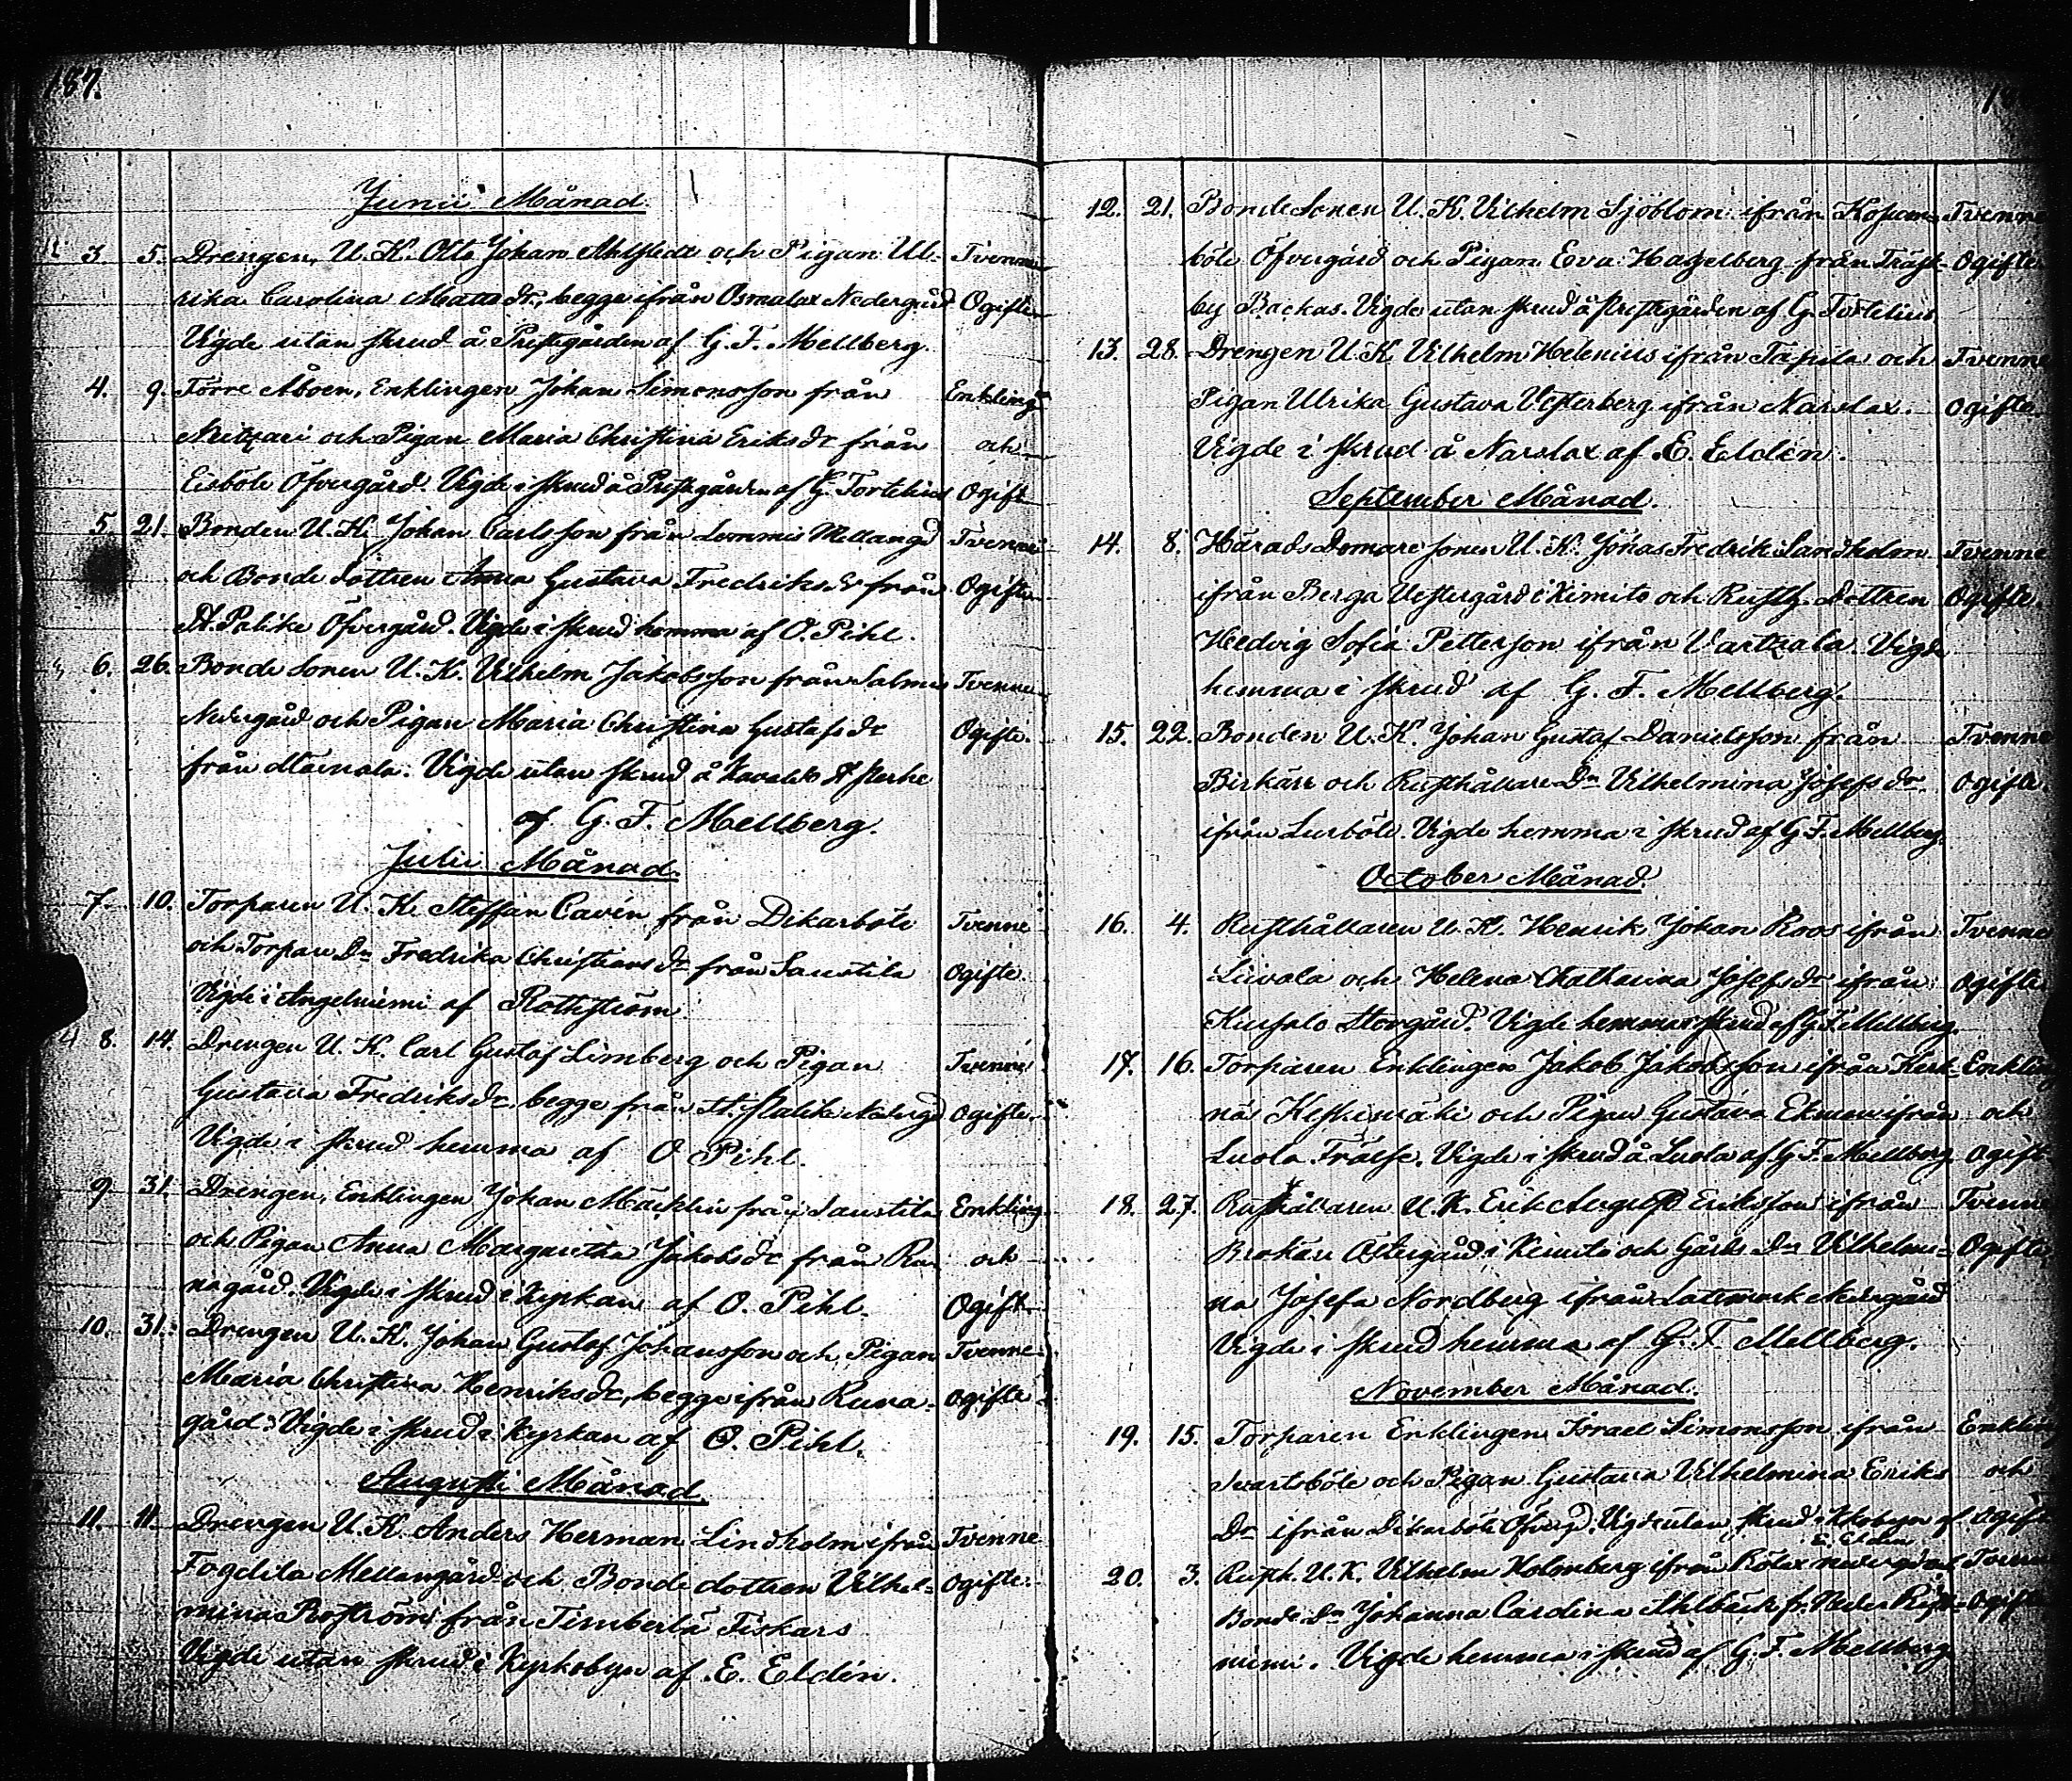 187.
Junii Månad.
3. 5. Drengen, U. K. Otto Johan Ahlstedt och Pigan Ul- Tvenne
rika Carolina Matts dr, begge ifrån Osmalax Nedergård Ogifte
Vigde utan skrud å Prestgården af G. F. Mellberg.
4. 9. Torre Åboen, Enklingen Johan Simonsson från Enkling
och Pigan Maria Christina Eriks dr från och
Eisböle Öfvergård. Vigde i skrud å Prestgården af G. Tortelius Ogift
5. 21. Bonden U. K. Johan Carlsson från Lemmis Mellangd Tvenne
och Bonde dottren Anna Gustava Fredriks dr från Ogifte
St. Palike Öfvergård. Vigde i skrud hemma af O. Pihl.
6. 26. Bonde Sonen U. K. Vilhelm Jakobsson från Salmis Tvenne
Nedergård och Pigan Maria Christina Gustafs dr Ogifte.
från Mainala. Vigde utan skrud å
af G. F. Mellberg.
Julii Månad.
7. 10. Torparen U. K. Steffan Cavén från Dikarböle Tvenne
och Torpare Dn Fredrika Christians dr från Saustila Ogifte.
Vigde i Angelniemi af Rothström
8. 14. Drengen U. K. Carl Gustaf Limberg och Pigan Tvenne
Gustava Fredriks dr, begge från St. Palike Nedergd Ogifte.
Vigde i skrud hemma af O Pihl.
9 31. Drengen, Enklingen Johan Mäcklin från Saustila Enkling.
och Pigan Anna Margaretha Jakobs dr från Ru- och
nagård. Vigde i skrud i Kyrkan af O. Pihl. Ogift
10. 31. Drengen U. K. Johan Gustaf Johansson och Pigan Tvenne
Maria Christina Henriks dr, begge ifrån Runa- Ogifte
gård. Vigde i skrud i Kyrkan af O. Pihl.
Augusti Månad.
11. 11. Drengen U. K. Anders Herman Lindholm ifrån Tvenne
Fogdila Mellangård och Bonde dottren Vilhel- Ogifte.
mina Roström från Timberla Fiskars
Vigde utan skrud i Kyrkobyn af E. Eldén.
12. 21. Bonde Sonen U. K. Vilhelm Sjöblom ifrån Tvenne
böle Öfvergård och Pigan Eva Hagelberg från Träsk- Ogifte
by Backas. Vigde utan skrud å Prestgården af G. Tortelius.
13. 28. Drengen U. K. Vilhelm Helenius ifrån Tapila och Tvenne
Pigan Ulrika Gustava Vesterberg ifrån Narslax. Ogifte
Vigde i skrud å Narslax af E. Eldén.
September Månad.
14. 8. Härads Domare sonen U. K. Jonas Fredrik Sandholm Tvenne
ifrån Berga Vestergård i Kimito och Rusth. Dottren Ogifte.
Hedvig Sofia Petterson ifrån Vartsala. Vigde
hemma i skrud af G. F. Mellberg.
15. 22. Bonden U. K. Johan Gustaf Danielsson från Tvenne
Birkärr och Rusthållare Dn Vilhelmina Josefs dr. Ogifte.
ifrån Lurböle. Vigde hemma i skrud af G. F. Mellberg.
October Månad.
16. 4. Rusthållaren U. K. Henrik Johan Roos ifrån Tvenne
och Helena Catharina Josefs dr ifrån Ogifte
Storgård. Vigde hemma i skrud af G. F. Mellberg.
17. 16. Torparen Enklingen Jakob Jakobsson ifrån Kesk- Enkling
nä Keskimäki och Pigan Gustava Ekman ifrån och
Luola Frälse. Vigde i skrud å Luola af G. F. Mellberg Ogift
18. 27. Rusthållaren U. K. Erik August Eriksson ifrån Tvenne
Östergård i Kimito och Gårds Dn Vilhelmi- Ogifte
na Josefa Nordberg ifrån Lattmark Nedergård
Vigde i skrud hemma af G. F. Mellberg.
November Månad.
19. 15. Torparen Enklingen Israel Simonsson ifrån Enkling
Svartsböle och Pigan Gustava Vilhelmina Eriks och
Dr ifrån Dikarböle Öfvergd. Vigde utan skrud i Kkobyn af Ogift
E. Eldén
20. 3. Rusth. U. K. Vilhelm Holmberg ifrån Nedergård Tvenne
Bonde Dn Johanna Carolina Ahlbäck fr. Neder Ogifte
niemi. Vigde hemma i skrud af G. F. Mellberg